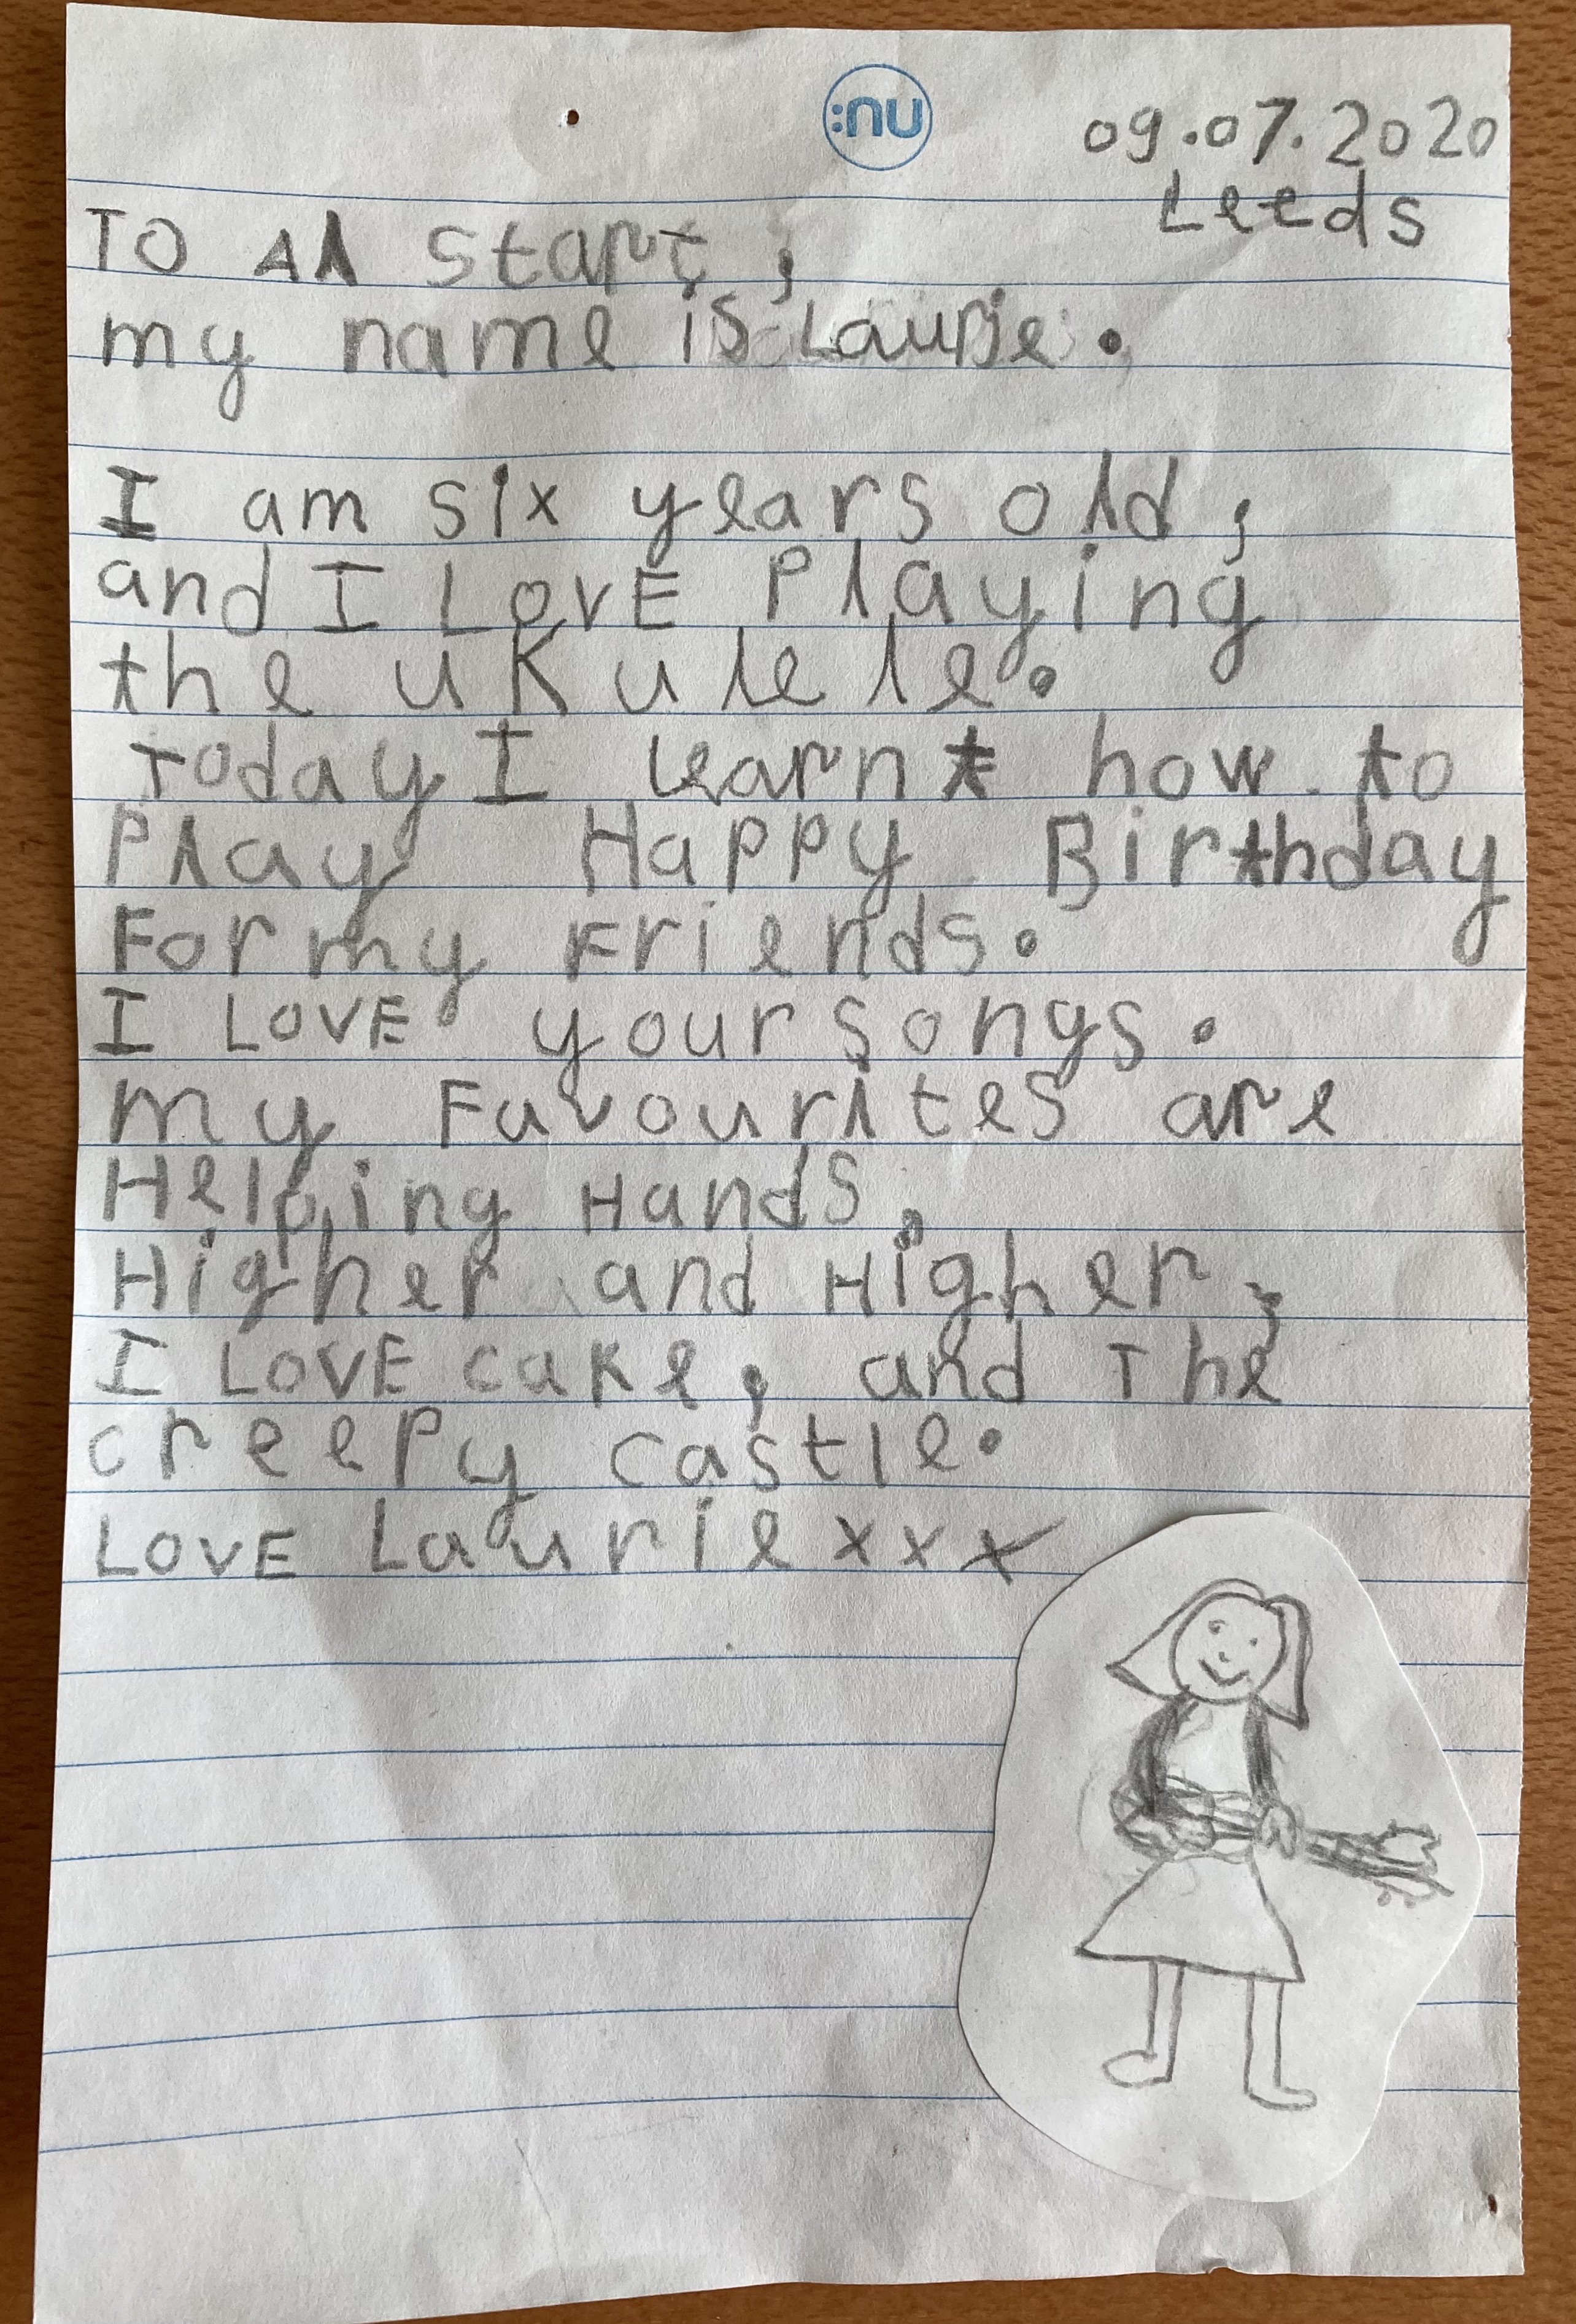 :nu
09.07.2020
Leeds
To Al Start,
my name is Laurie.
I am six years old,
and I LOVE Playing
the uKulele.
Today I learnt how to
Play Happy Birthday
For my Friends.
I LOVE your songs.
my Favourites are
Helping Hands,
Higher and Higher,
I LOVE cake, and The
creepy castle.
LOVE Laurie xxx